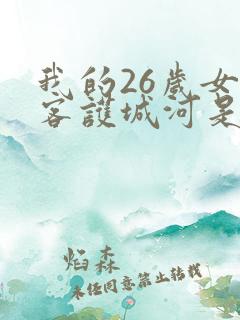 我的26岁女
客护城河是
焰森
未经同意禁止转载